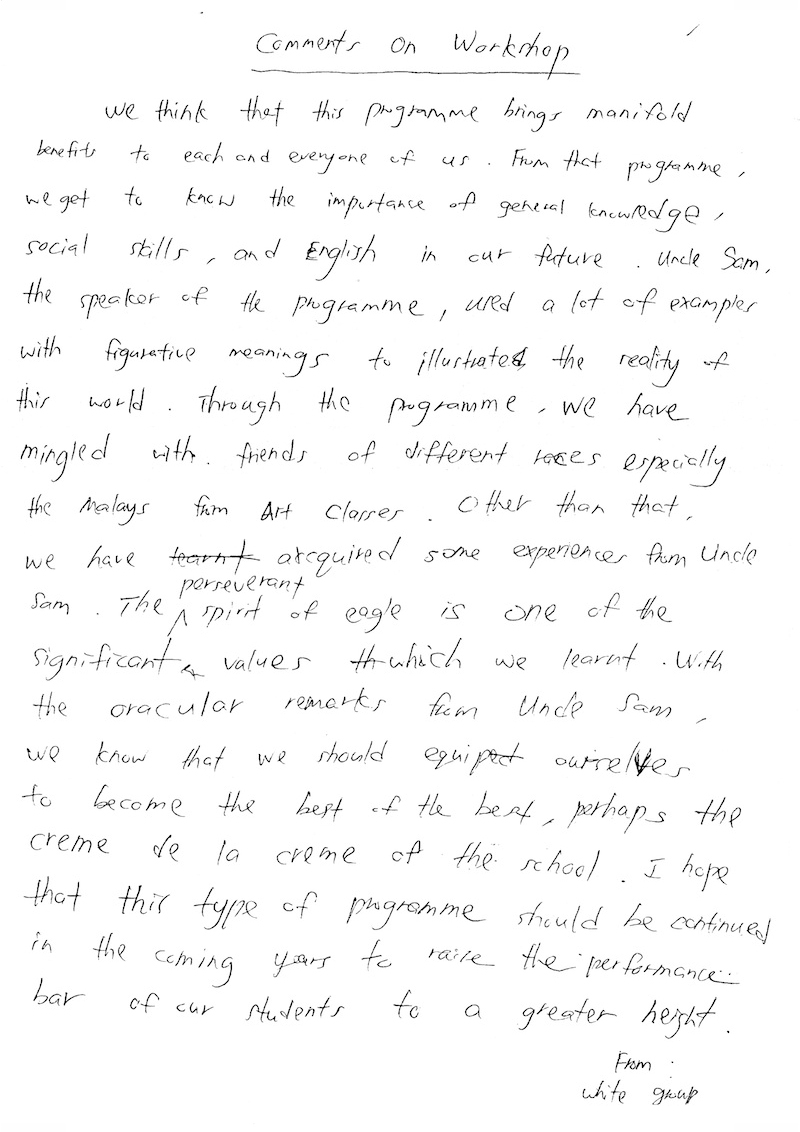 Comments On Workshop
We think that this programme brings manifold
benefits to each and everyone of us. From that programme,
we get to know the importance of general knowledge,
social skills, and English in our future. Uncle Sam,
the speaker of the programme, used a lot of examples
with figurative meanings to illustrated the reality of
this world. Through the programme, we have
mingled with friends of different races especially
the Malays from Art Classes. Other than that,
we have learnt arcquired some experiences from Uncle
perseverant
Sam. The spirit of eagle is one of the
significant values th which we learnt. With
the oracular remarks from Uncle Sam,
we know that we should equipt ourselves
to become the best of the best, perhaps the
creme de la creme of the school. I hope
that this type of programme should be continued
in the coming years to raise the performance
bar of our students to a greater height.
From
white group